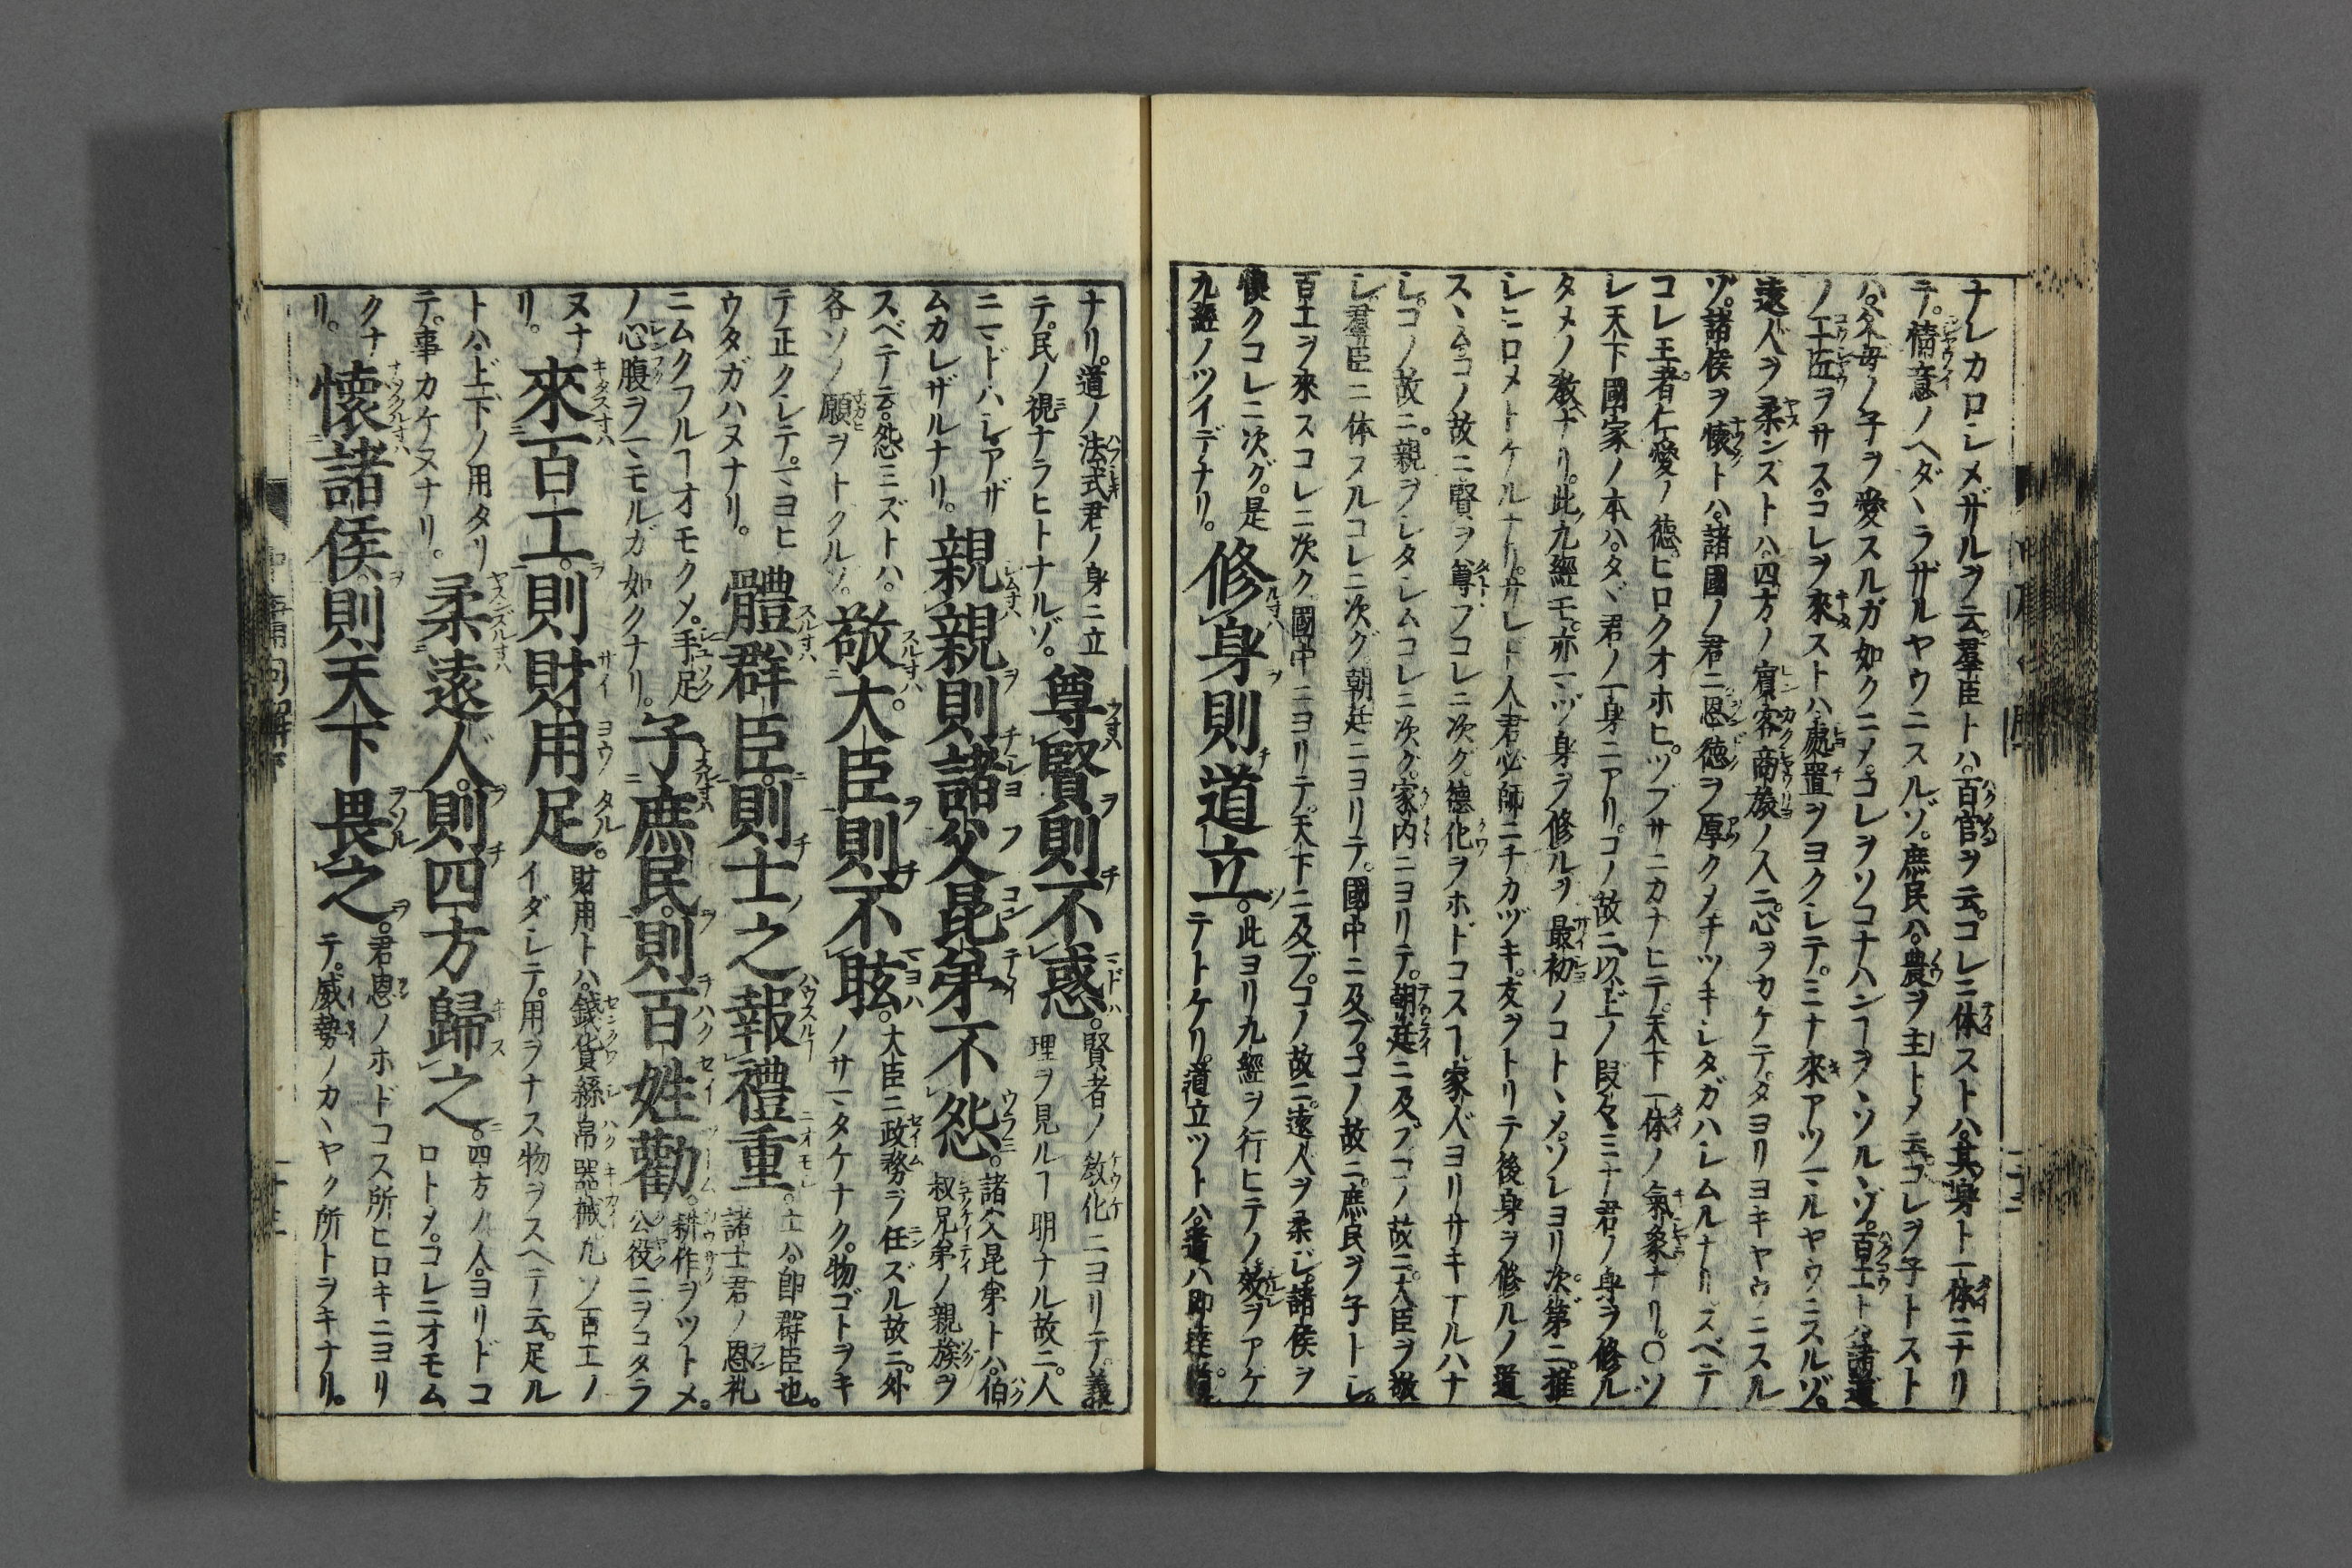 ナレカロシメザルヲ云。羣臣トハ。百官ヲ云。コレニ体ストハ。其身ト一体ニナリ
テ。情意ノヘダヽラザルヤウニスルゾ。庶民ハ。農ヲ主トメ云。コレヲ子トスト
ハ。父母ノ子ヲ愛スルガ如クニメ。コレヲソコナハンヿヲヽソルヽゾ。百工トハ諸道
ノ工匠ヲサス。コレヲ來ストハ。處置ヲヨクシテ。ミナ來アツマルヤウニスルゾ。
遠人ヲ柔ンズトハ。四方ノ賓客商旅ノ人ニ。心ヲカケテ。タヨリヨキヤウニスル
ゾ。諸侯ヲ懐トハ。諸國ノ君ニ恩徳ヲ厚クメ。チツキシタガハシムルナリ。スベテ
コレ王者。仁愛ノ徳。ヒロクオホヒ。ツブサニカナヒテ。天下一体ノ氣象ナリ。〇ソ
レ天下國家ノ本ハ。タヾ君ノ一身ニアリ。コノ故ニ。以上ノ段々ミナ君ノ身ヲ修ル
タメノ教ナリ。此九經モ。亦マヅ身ヲ修ルヲ。最初ノコトヽメ。ソレヨリ次第ニ。推
シヒロメトケルナリ。サレド人君必師ニチカヅキ。友ヲトリテ後身ヲ修ルノ道
スヽム。コノ故ニ賢ヲ尊ブコレニ次グ。徳化ヲホドコスヿ家人ヨリサキナルハナ
シ。コノ故ニ。親ヲシタシムコレニ次グ。家内ニヨリテ。朝廷ニ及ブ。コノ故ニ。大臣ヲ敬
シ。羣臣ニ体スルコレニ次グ。朝廷ニヨリテ。國中ニ及ブ。コノ故ニ。庶民ヲ子トシ。
百工ヲ來スコレニ次ク。國中ニヨリテ。天下ニ及ブ。コノ故ニ。遠人ヲ柔シ。諸侯ヲ
懐クコレニ次グ。是
九經ノツイデナリ。
修身則道立。
此ヨリ九經ヲ行ヒテノ。效ヲアケ
テトケリ。道立ツトハ。道ハ即達道
ナリ。道ノ法式君ノ身ニ立
テ。民ノ視ナラヒトナルゾ。
尊賢則不惑。
賢者ノ教化ニヨリテ。義
理ヲ見ルヿ明ナル故ニ。人
ニマドハシアザ
ムカレザルナリ。
親親則諸父昆弟不怨。
諸父昆弟トハ。伯
叔兄弟ノ親族ヲ
スベテ云。怨ミズトハ。
各ソノ願ヲトクル也。
敬大臣則不眩。
大臣ニ政務ヲ任ズル故ニ。外
ノサマタケナク。物ゴトヲキ
テ正クシテ。マヨヒ
ウタガハヌナリ。
體群臣。則士之報禮重。
士ハ。即群臣也。
諸士君ノ恩礼
ニムクフルヿオモクメ。手足
ノ心腹ヲマモルガ如クナリ。
子庶民。則百姓勸。
耕作ヲツトメ。
公役ニヲコタラ
ヌナ
リ。
來百工。則財用足。
財用トハ。錢貨絲帛器械凡ソ百工ノ
イダシテ。用ヲナス物ヲスヘテ云。足ル
トハ。上下ノ用タリ
テ。事カケヌナリ。
柔遠人。則四方歸之。
四方ノ人。ヨリドコ
ロトメ。コレニオモム
クナ
リ。
懐諸侯。則天下畏之。
君恩ノホドコス所ヒロキニヨリ
テ。威勢ノカヽヤク所トヲキナリ。